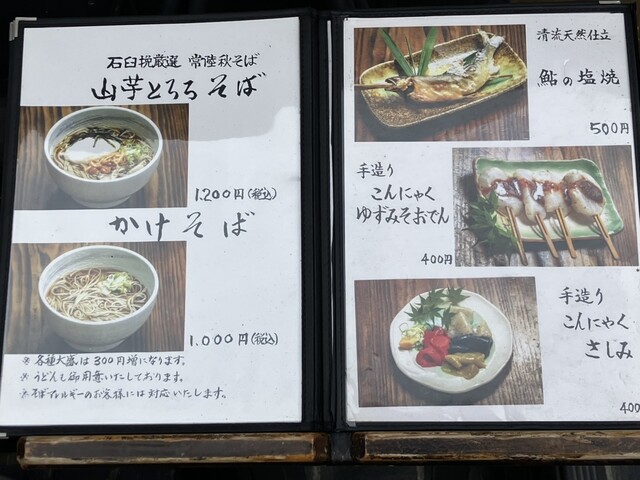 石臼挽厳選 常陸秋そば
山芋とろろそば
1.200円(税込)
かけそば
1.000円(税込)
※各種大盛は300円増になります。
※うどんも御用意いたしております。
※そばアレルギーのお客様には対応いたします。
清流天然仕立
鮎の塩焼
500円
手造り
こんにゃく
ゆずみそおでん
400円
手造り
こんにゃく
さしみ
400